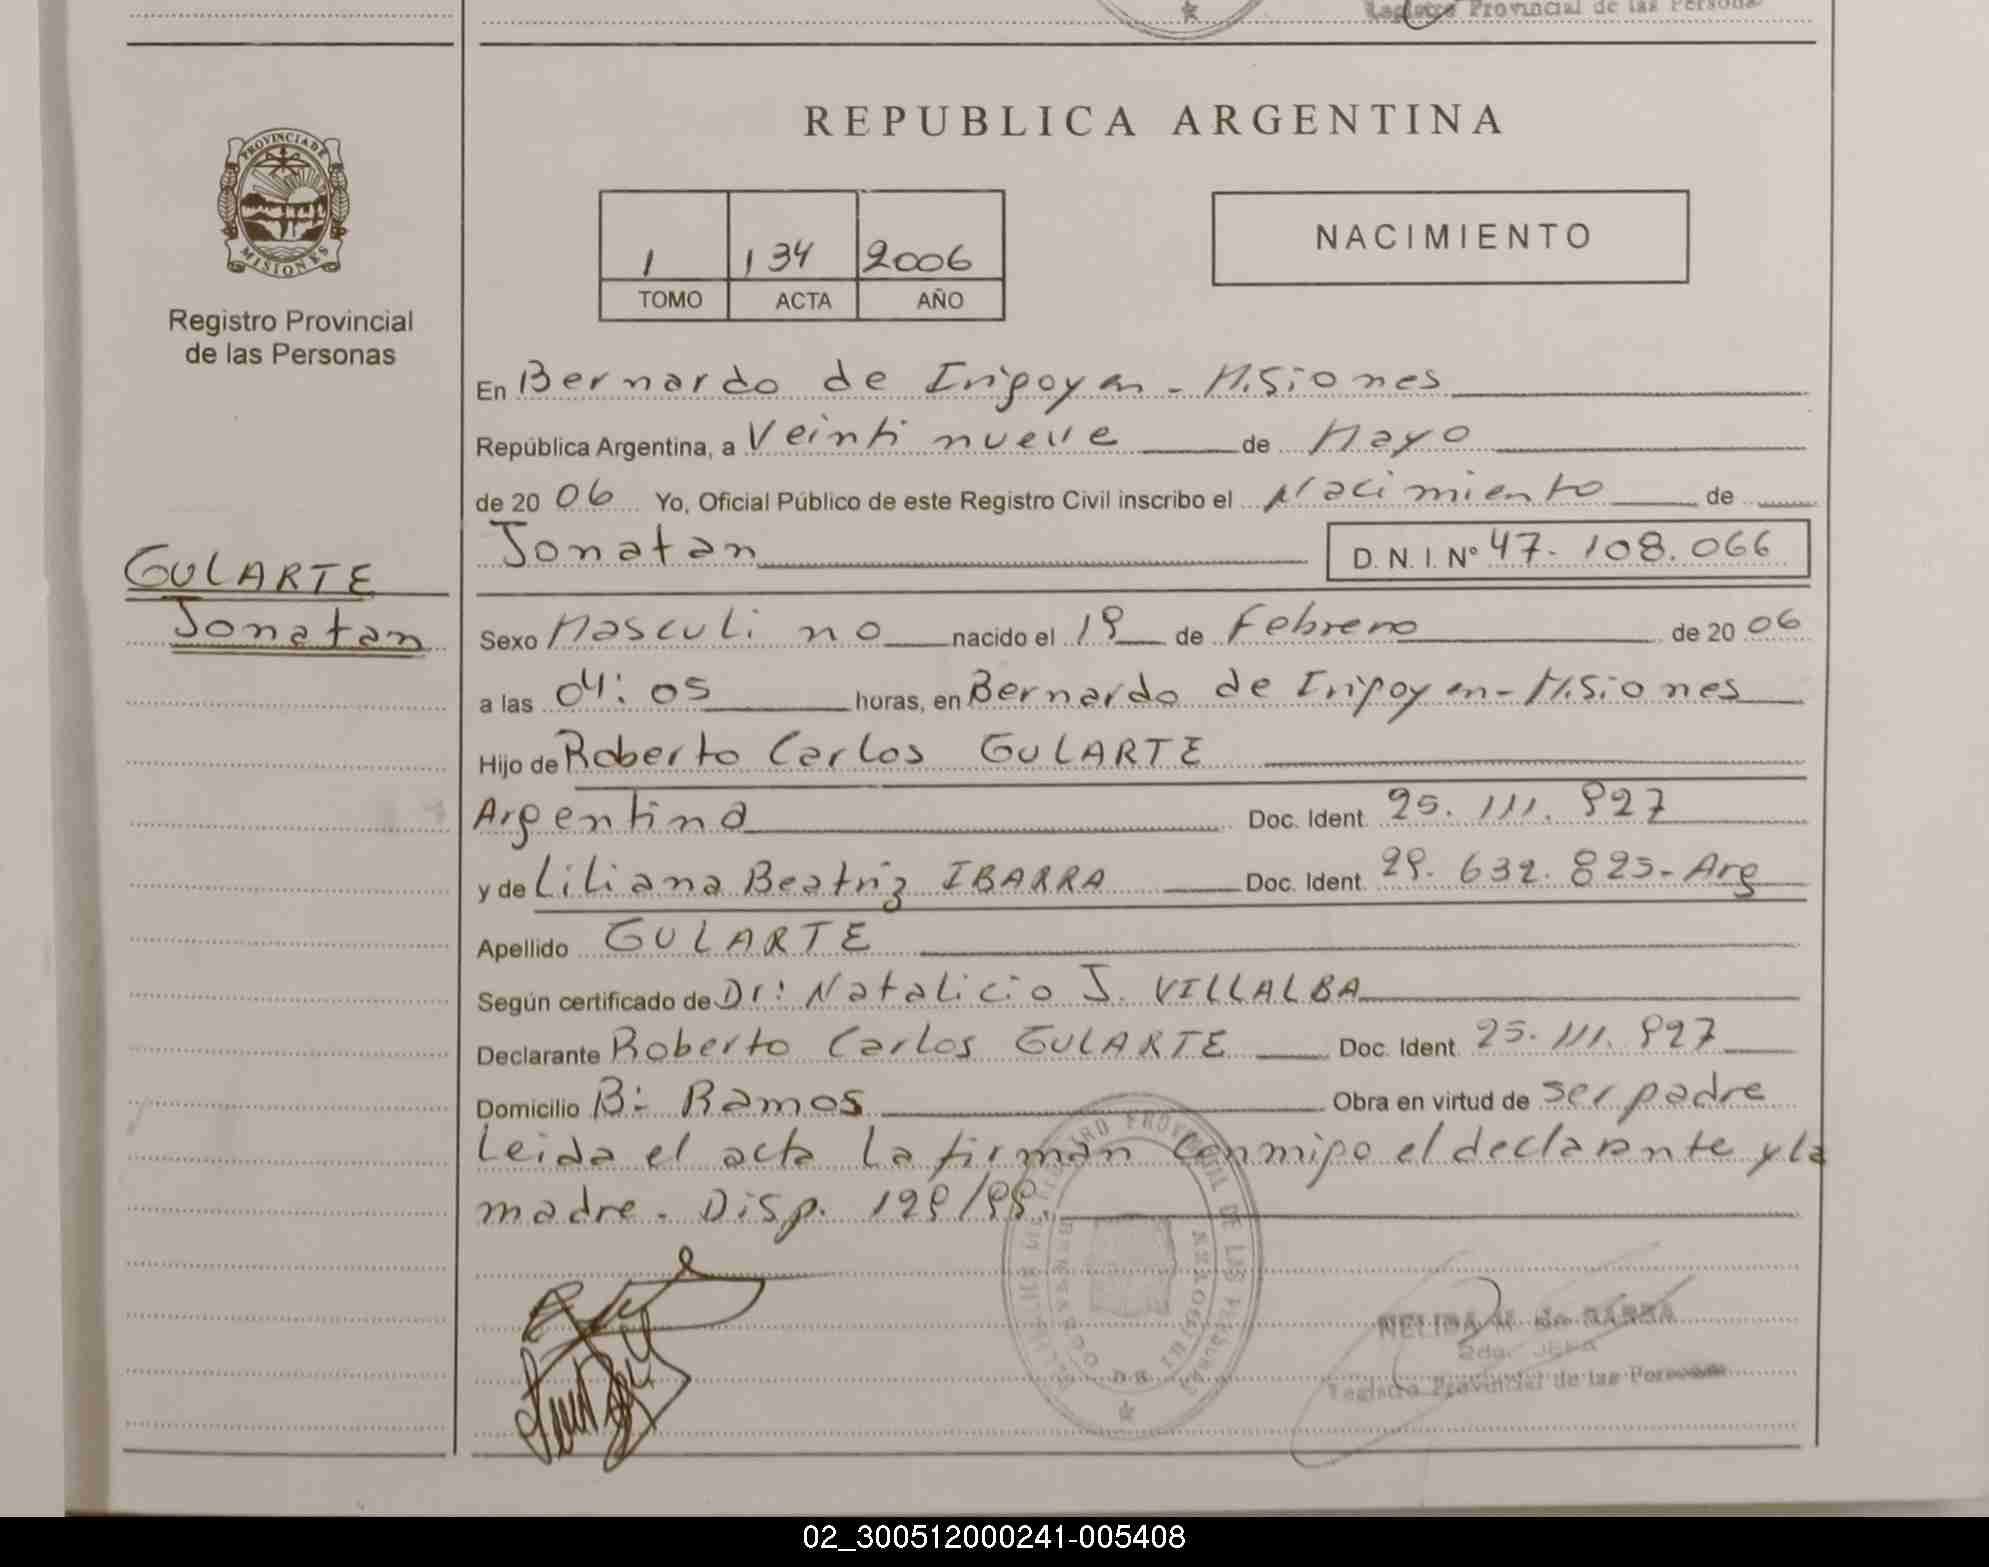 Registro Provincial de las Persona
REPUBLICA ARGENTINA
PROVINCIA DE
MISIONES
Registro Provincial
de las Personas
1 134 2006
TOMO ACTA AÑO
NACIMIENTO
En Bernardo de Irigoyen - Misiones
República Argentina, a Veinti nueve de Mayo
de 20 06 Yo, Oficial Público de este Registro Civil inscribo el Nacimiento de
Jonatan D. N. I. Nº 47.108.066
GULARTE
Jonatan
Sexo Masculino nacido el 19 de Febrero de 20 06
a las 04:05 horas, en Bernardo de Irigoyen - Misiones
Hijo de Roberto Carlos GULARTE
Argentina Doc. Ident. 25.111.927
y de Liliana Beatriz IBARRA Doc. Ident. 29.632.825 - Arg
Apellido GULARTE
Según certificado de Dr: Natalicio J. VILLALBA
Declarante Roberto Carlos GULARTE Doc. Ident. 25.111.927
Domicilio Bº Ramos Obra en virtud de ser padre
Leida el acta la firman conmigo el declarante y la
madre. Disp. 129/99.
NELIDA M. de BARRA
2da. JEFA
Registro Provincial de las Personas
02_300512000241-005408